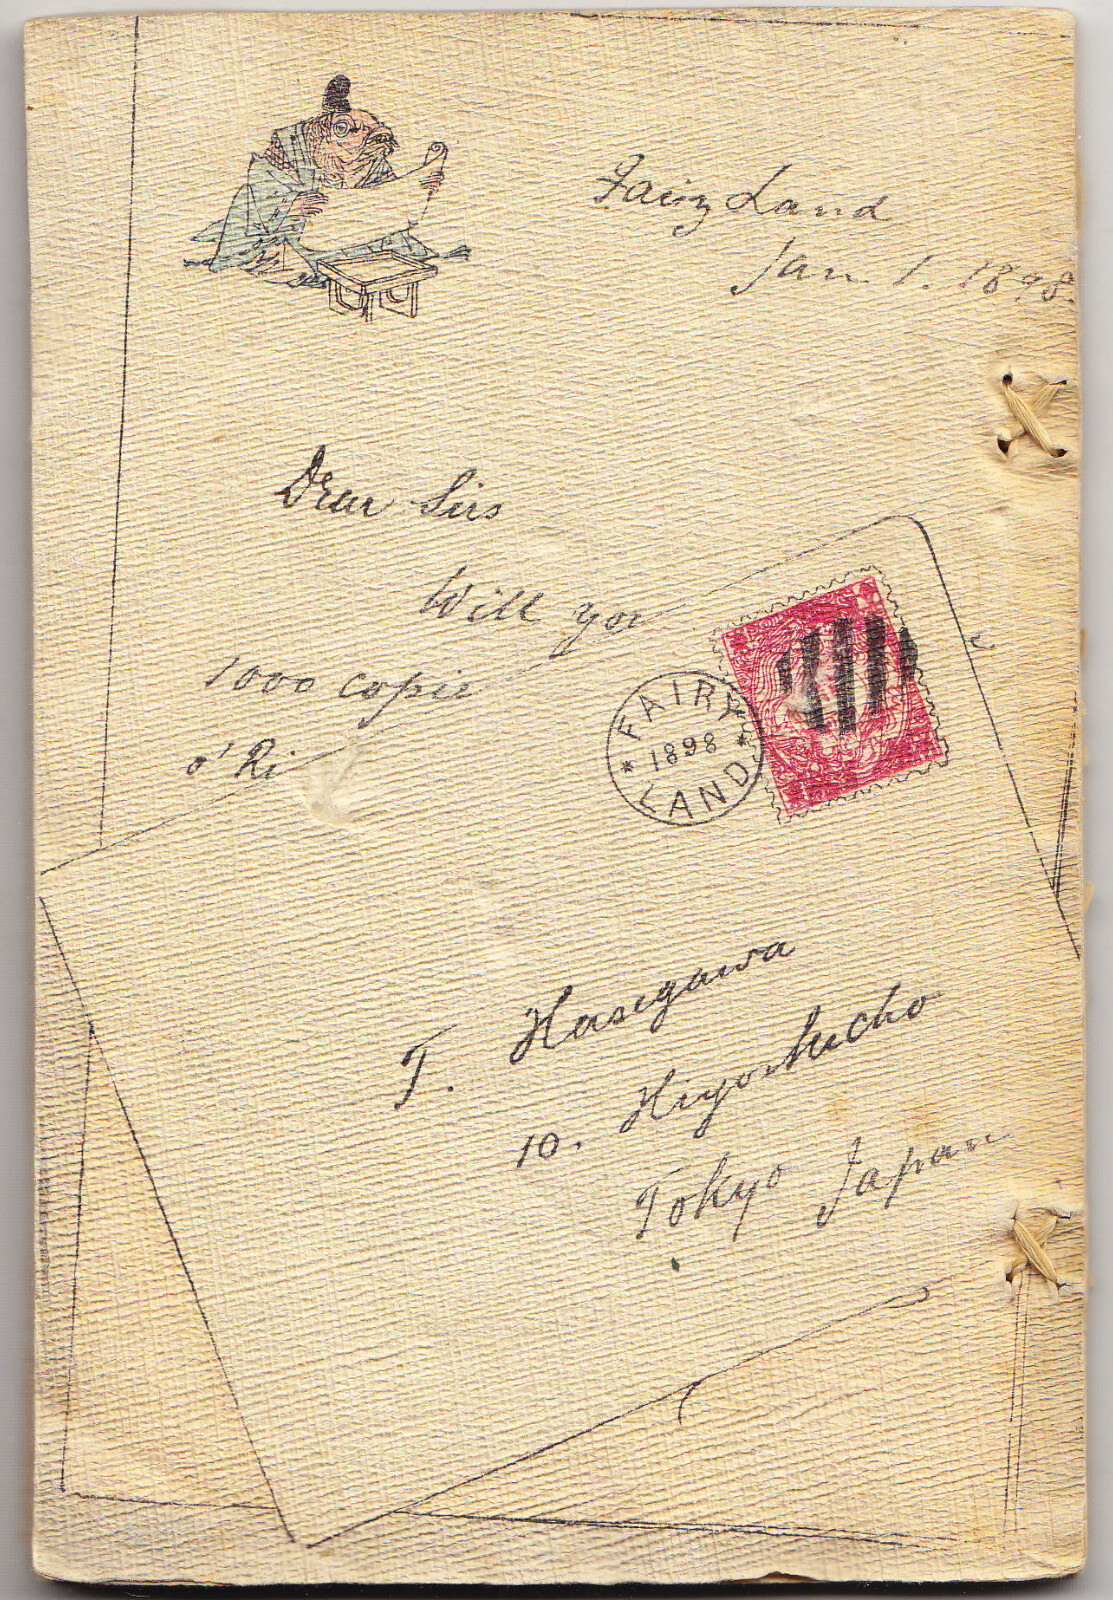 Fairy Land
Jan 1. 1898.
Dear Sirs
Will you
1000 copie
o' Ri
FAIRY
1898
LAND
T. Hasegawa
10. Hiyoshicho
Tokyo Japan